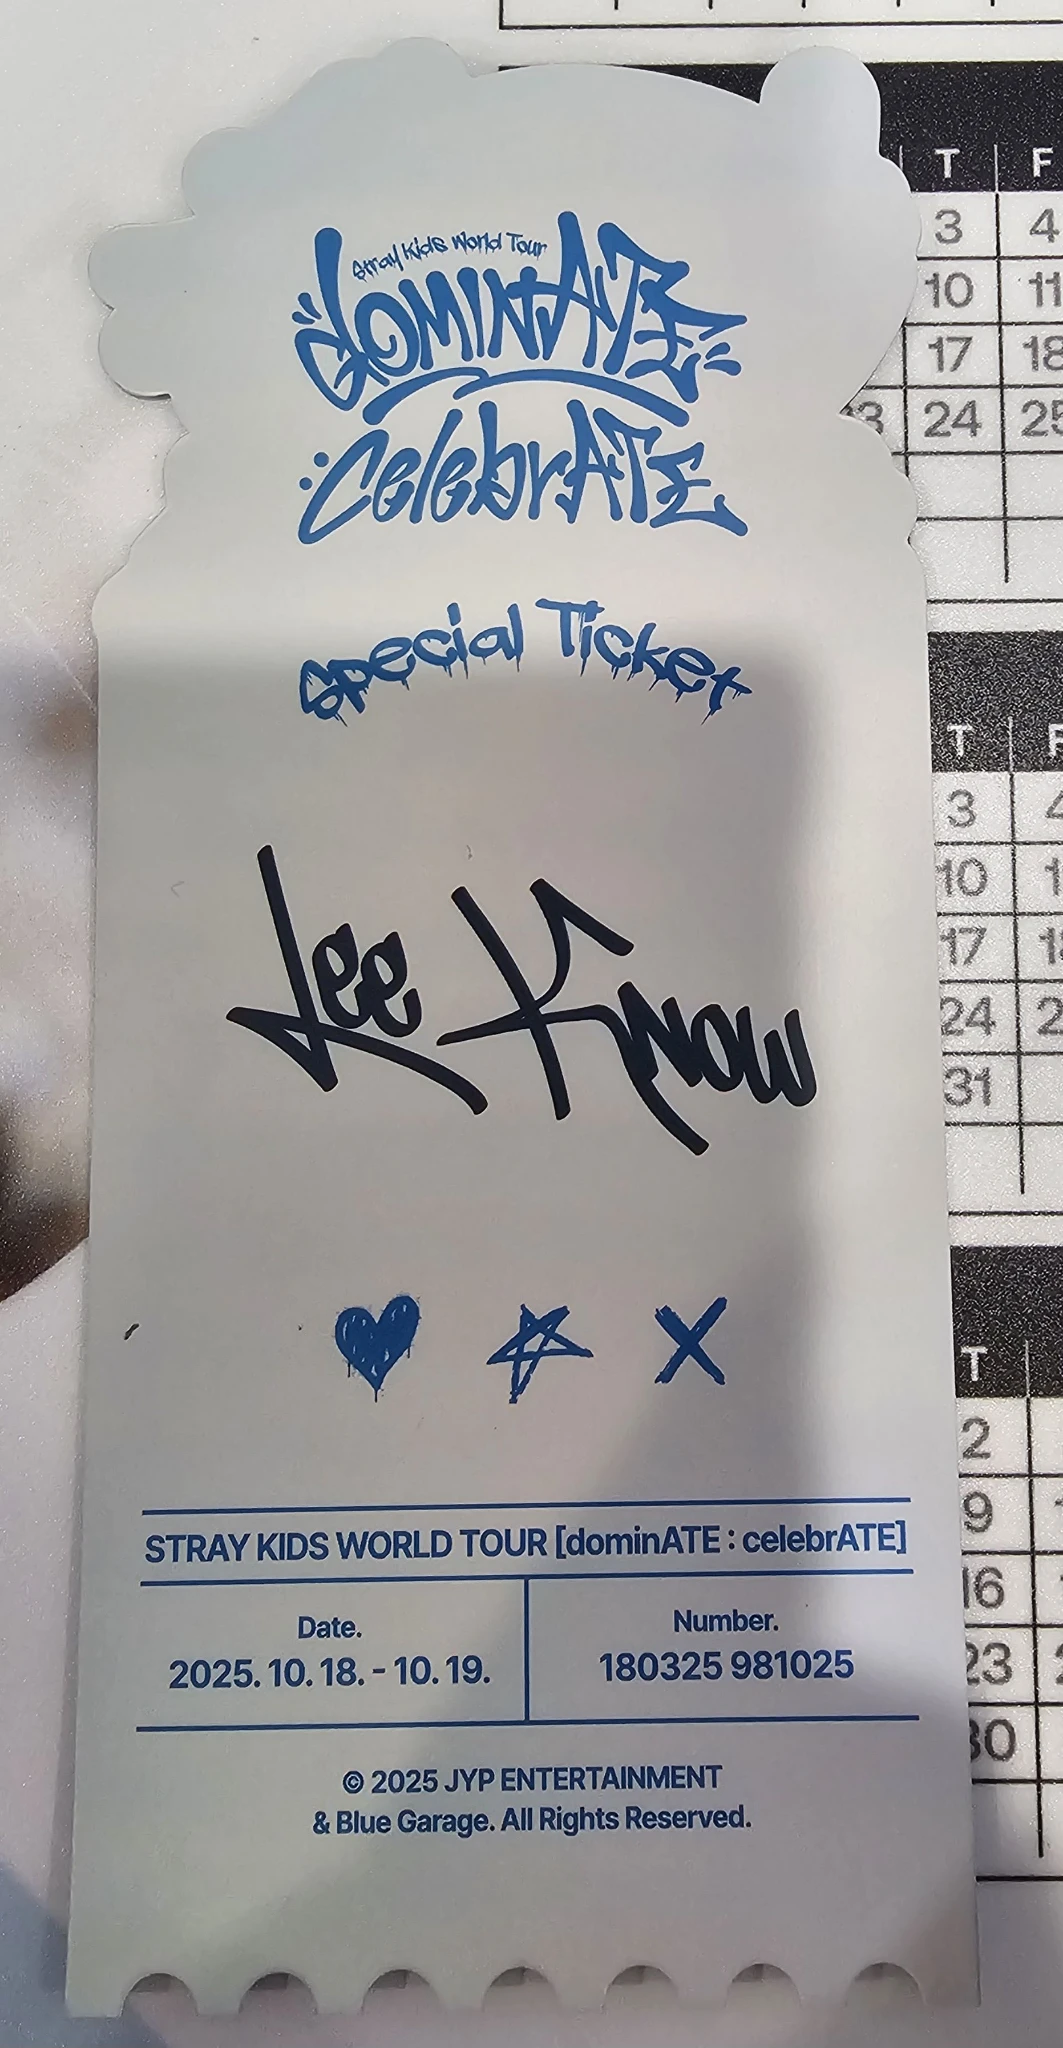 Stray Kids World Tour
dominATE
celebrATE
Special Ticket
Lee Know
STRAY KIDS WORLD TOUR [dominATE : celebrATE]
Date.
2025. 10. 18. - 10. 19.
Number.
180325 981025
© 2025 JYP ENTERTAINMENT
& Blue Garage. All Rights Reserved.
T F
3 4
10 11
17 18
24 25
T
3
10
17
24
31
T
2
9
16
23
30